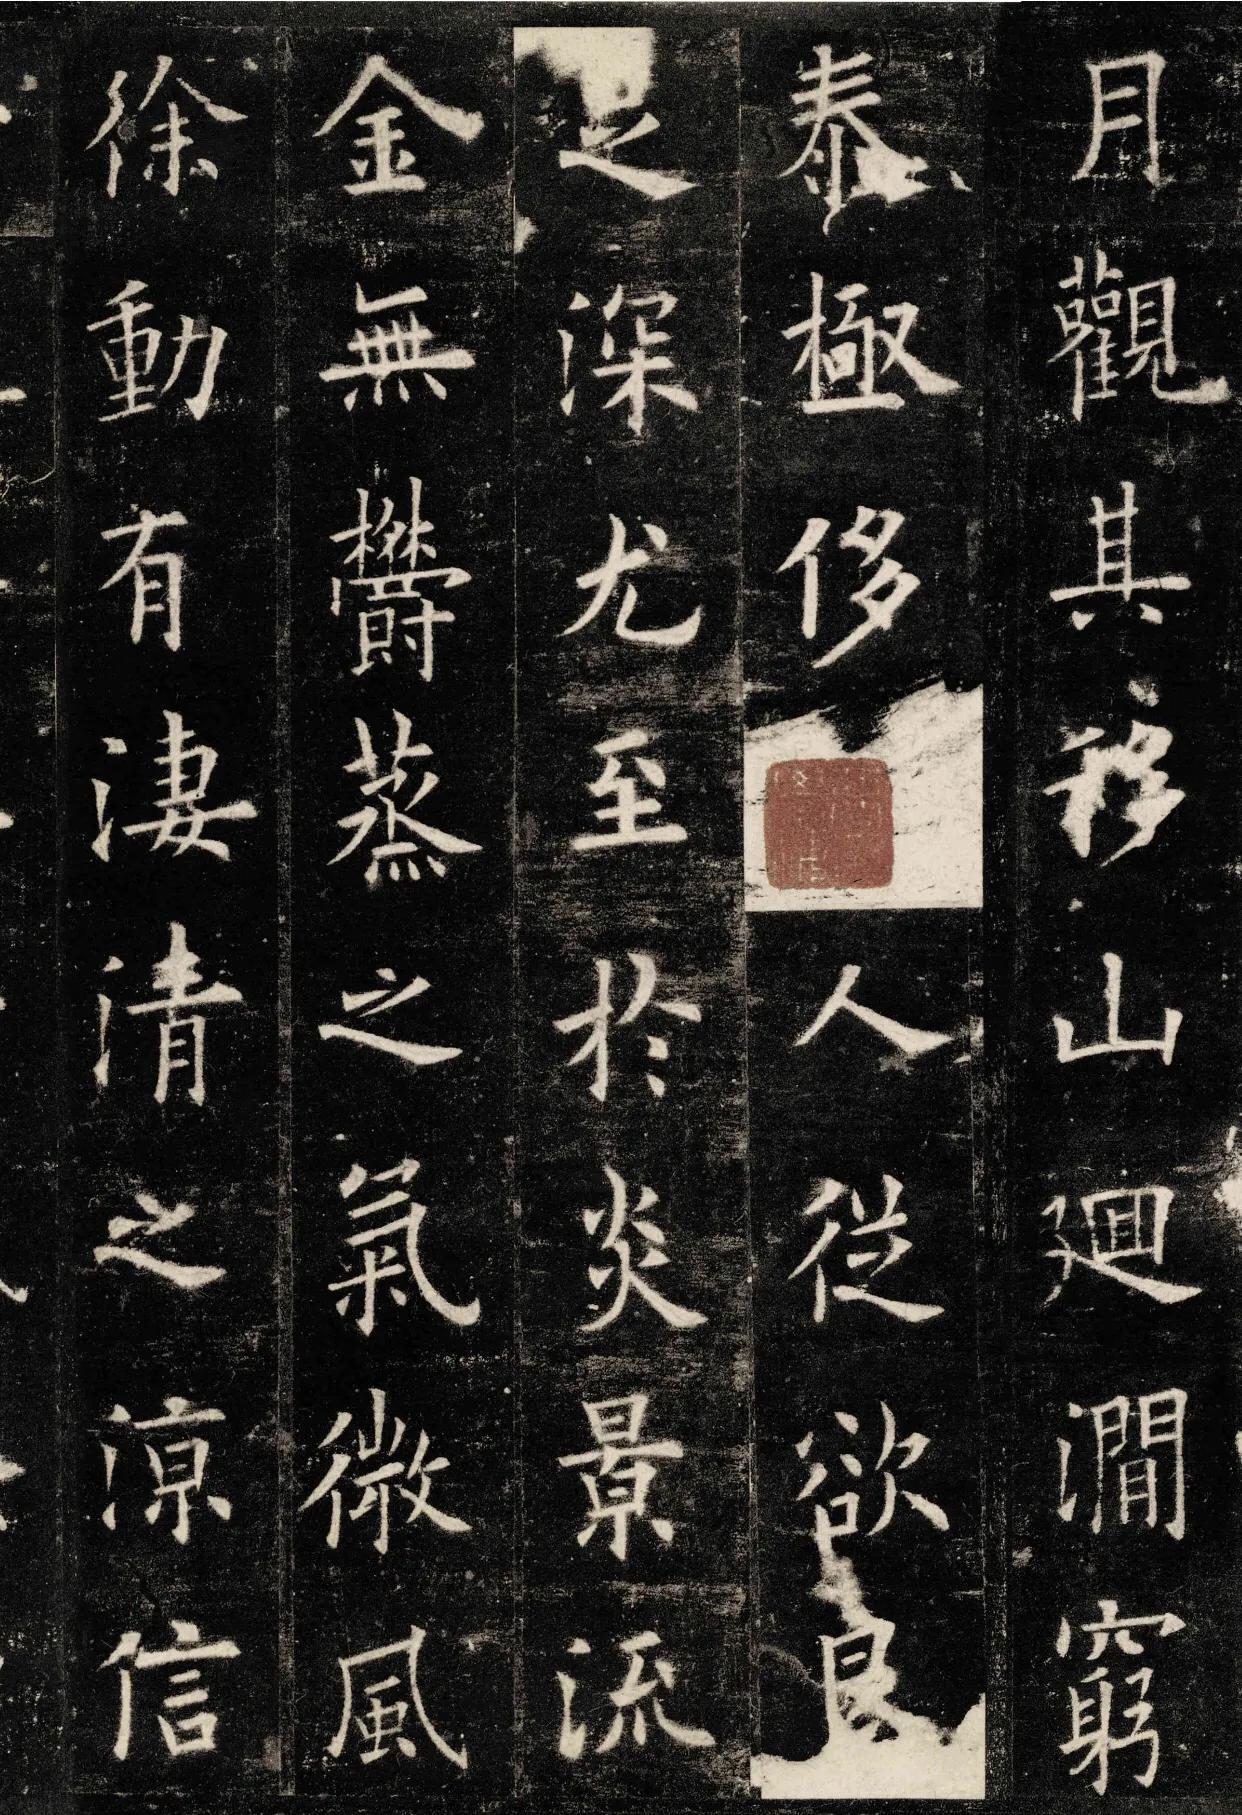 月觀其移山廻澗窮
泰極侈人從欲良
足深尤至於炎景流
金無欝蒸之氣微風
徐動有淒清之涼信